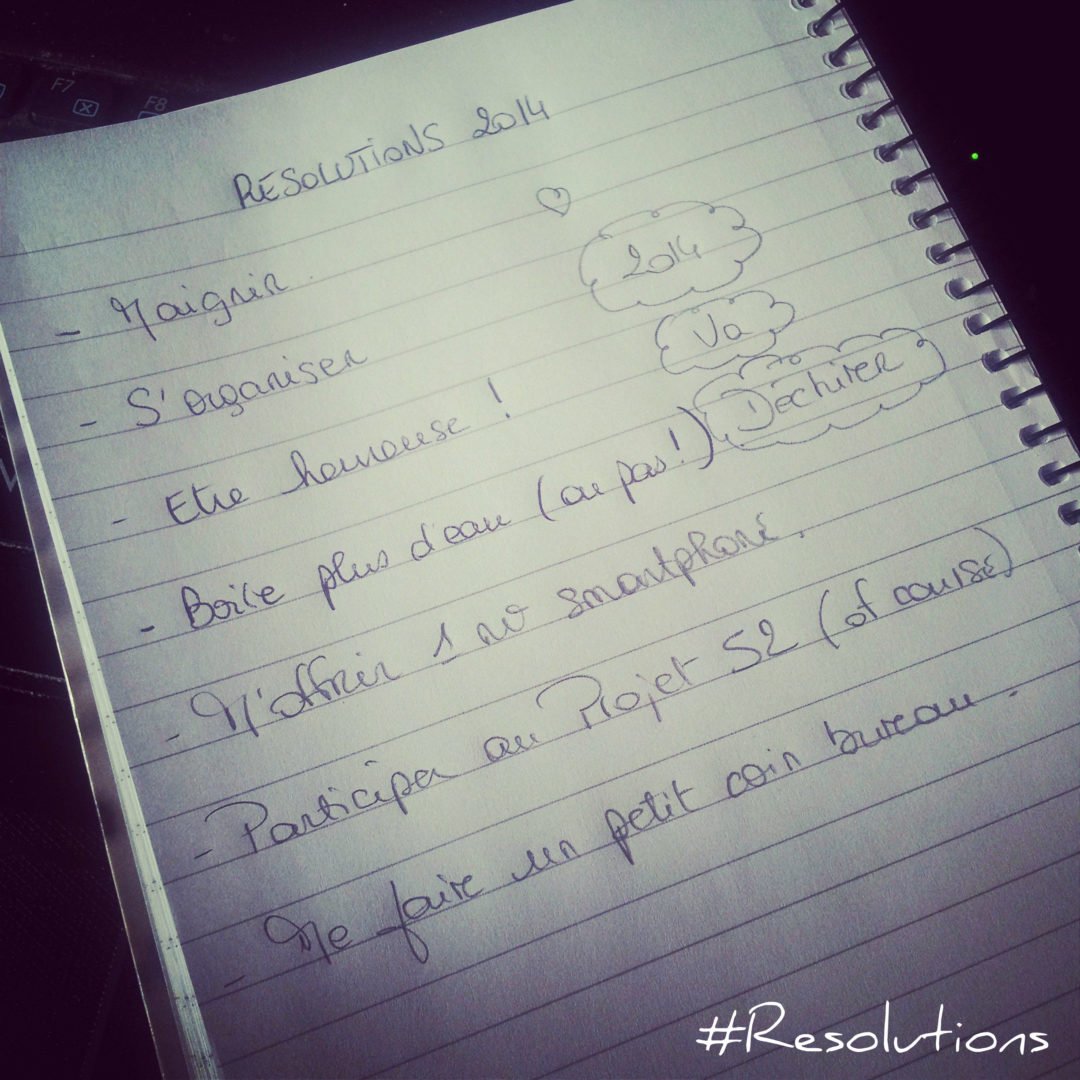 F7
F8
RESOLUTIONS 2014
- Maigrir
- S'organiser
- Etre heureuse !
- Boire plus d'eau (ou pas!)
- M'offrir 1 nv smartphone.
- Participer au Projet 52 (of course)
- Me faire un petit coin bureau.
2014
Va
Déchirer
#Resolutions